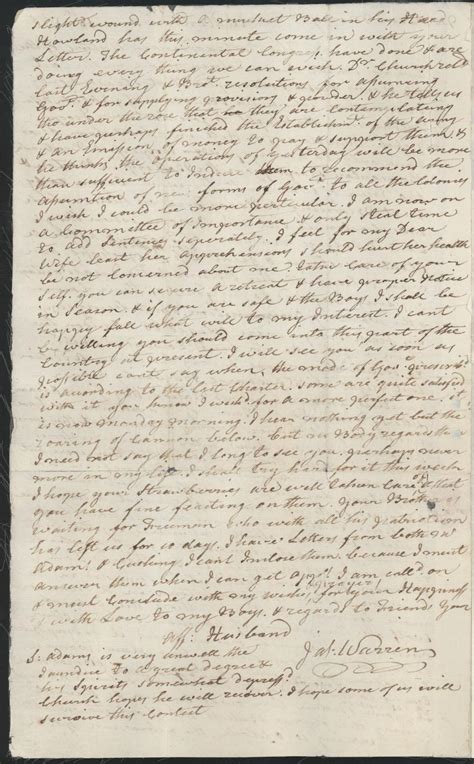 slight wound with a musket Ball in his Head
Howland has this minute come in with your
Letter. The Continental Congress have done & are
doing every thing we can wish. Dr. Church retd.
last Evening & Brot. resolutions for assuming
Govt. & for supplying provisions & powder & he tells us
tho under the rose that they are contemplating
& have perhaps finished the Establishmt. of the army
& an Emission of money to pay & support them &
he thinks the operations of Yesterday will be more
than sufficient to Induce them to recommend the
assumtion of new forms of Govt. to all the Colonies
I wish I could be more perticular. I am now on
a Committee of Importance & only steal time
to add Sentences seperately. I feel for my Dear
Wife least her Apprehensions should hurt her health
be not concerned about me. take care of your
Self. you can secure a retreat & have proper Notice
in Season. & if you are safe & the Boys I shall be
happy fall what will to my Interest. I cant
be willing you should come into this part of the
Country at present. I will see you as soon as
possible cant say when. the mode of Govt. prescrib'd
is according to the last Charter. some are quite satisfied
with it you know I wish'd for a more perfect one. it
is now monday morning. I hear nothing yet but the
roaring of Cannon below. but no Body regards them
I need not say that I long to see you, perhaps never
more in my life. I shall try hard for it this week
I hope your Strawberries are well taken care of & that
you have fine feasting on them. Your Brother is
waiting for Freeman who with all his patriotism
has left us for 10 days. I have Letters from both
Adams' & Cushing. I cant Inclose them because I must
answer them when I can get Oppy. I am call'd on
& must Conclude with my wishes & prayers for your Happiness
& with Love to my Boys & regards to Friends your
Afft. Husband
Jas. Warren
S: Adams is very unwell the
Jaundice to a great degree &
his Spirits somewhat depress'd
Church hopes he will recover. I hope some of us will
survive this Contest